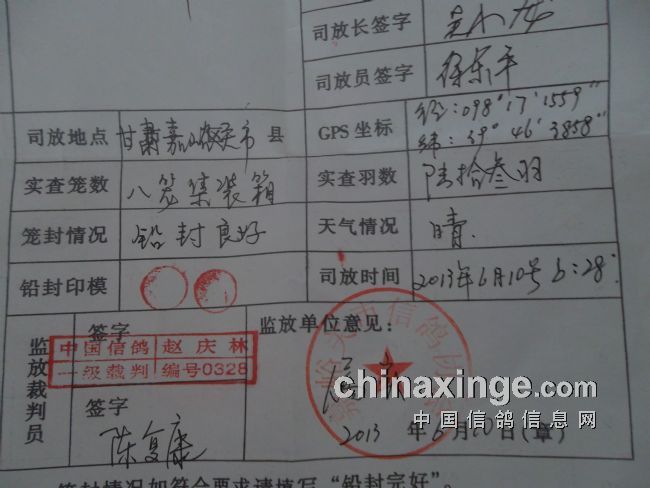 司放长签字
司放员签字 徐荣平
司放地点 甘肃嘉峪关市 县 GPS 坐标 经：098°17′1559″
纬：39°46′3858″
实查笼数 八笼集装箱 实查羽数 陆拾叁羽
笼封情况 铅封良好 天气情况 晴.
铅封印模 司放时间 2013年6月10号 6:28′
监放裁判员 签字 监放单位意见：
中国信鸽 赵庆林
一级裁判 编号0328
签字
陈复康
2013 年 6 月 10 日（章）
chinaxinge.com
中国信鸽信息网
笼封情况如符合要求请填写“铅封完好”。